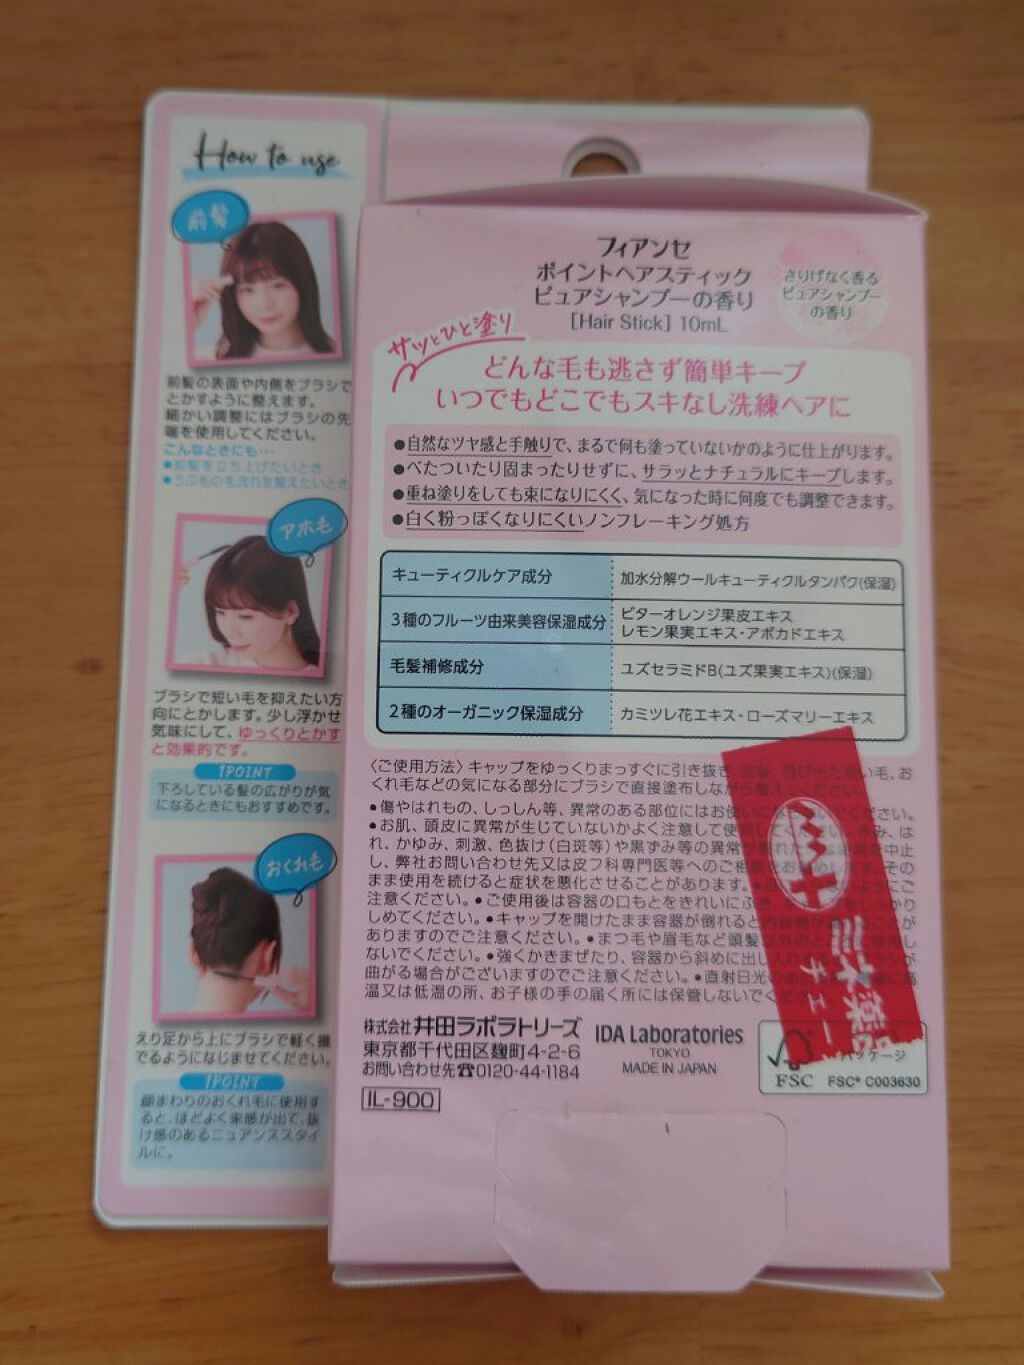 How to use
前髪
前髪の表面や内側をブラシで
とかすように整えます。
細かい調整にはブラシの先
端を使用してください。
こんなときにも…
●前髪を立ち上げたいとき
●うぶ毛の毛流れを整えたいとき
アホ毛
ブラシで短い毛を抑えたい方
向にとかします。少し浮かせ
気味にして、ゆっくりとかす
と効果的です。
1POINT
下ろしている髪の広がりが気
になるときにもおすすめです。
おくれ毛
えり足から上にブラシで軽く撫
でるようになじませてください。
1POINT
顔まわりのおくれ毛に使用す
ると、ほどよく束感が出て、抜
け感のあるニュアンススタイ
ルに。
フィアンセ
ポイントヘアスティック
ピュアシャンプーの香り
[Hair Stick] 10mL
さりげなく香る
ピュアシャンプー
の香り
サッとひと塗り
どんな毛も逃さず簡単キープ
いつでもどこでもスキなし洗練ヘアに
●自然なツヤ感と手触りで、まるで何も塗っていないかのように仕上がります。
●べたついたり固まったりせずに、サラッとナチュラルにキープします。
●重ね塗りをしても束になりにくく、気になった時に何度でも調整できます。
●白く粉っぽくなりにくいノンフレーキング処方
キューティクルケア成分 加水分解ウールキューティクルタンパク(保湿)
3種のフルーツ由来美容保湿成分 ビターオレンジ果皮エキス
レモン果実エキス・アボカドエキス
毛髪補修成分 ユズセラミドB(ユズ果実エキス)(保湿)
2種のオーガニック保湿成分 カミツレ花エキス・ローズマリーエキス
〈ご使用方法〉キャップをゆっくりまっすぐに引き抜き、い毛、お
くれ毛などの気になる部分にブラシで直接塗布しながら
●傷やはれもの、しっしん等、異常のある部位にはお使いにください。
●お肌、頭皮に異常が生じていないかよく注意して使用は
れ、かゆみ、刺激、色抜け(白斑等)や黒ずみ等の異常がを中止
し、弊社お問い合わせ先又は皮フ科専門医等へのごその
まま使用を続けると症状を悪化させることがあります。ようにご
注意ください。●ご使用後は容器の口もとをきれいにふしっかり
しめてください。●キャップを開けたまま容器が倒れるとことが
ありますのでご注意ください。●まつ毛や眉毛など頭髪し
ないでください。●強くかきまぜたり、容器から斜めに出しブラシが
曲がる場合がございますのでご注意ください。●直射日光高
温又は低温の所、お子様の手の届く所には保管しないでく
株式会社井田ラボラトリーズ
東京都千代田区麹町4-2-6
お問い合わせ先☎0120-44-1184
IL-900
IDA Laboratories
TOKYO
MADE IN JAPAN
FSC
パッケージ
FSC® C003630
ミネ薬品
チェー